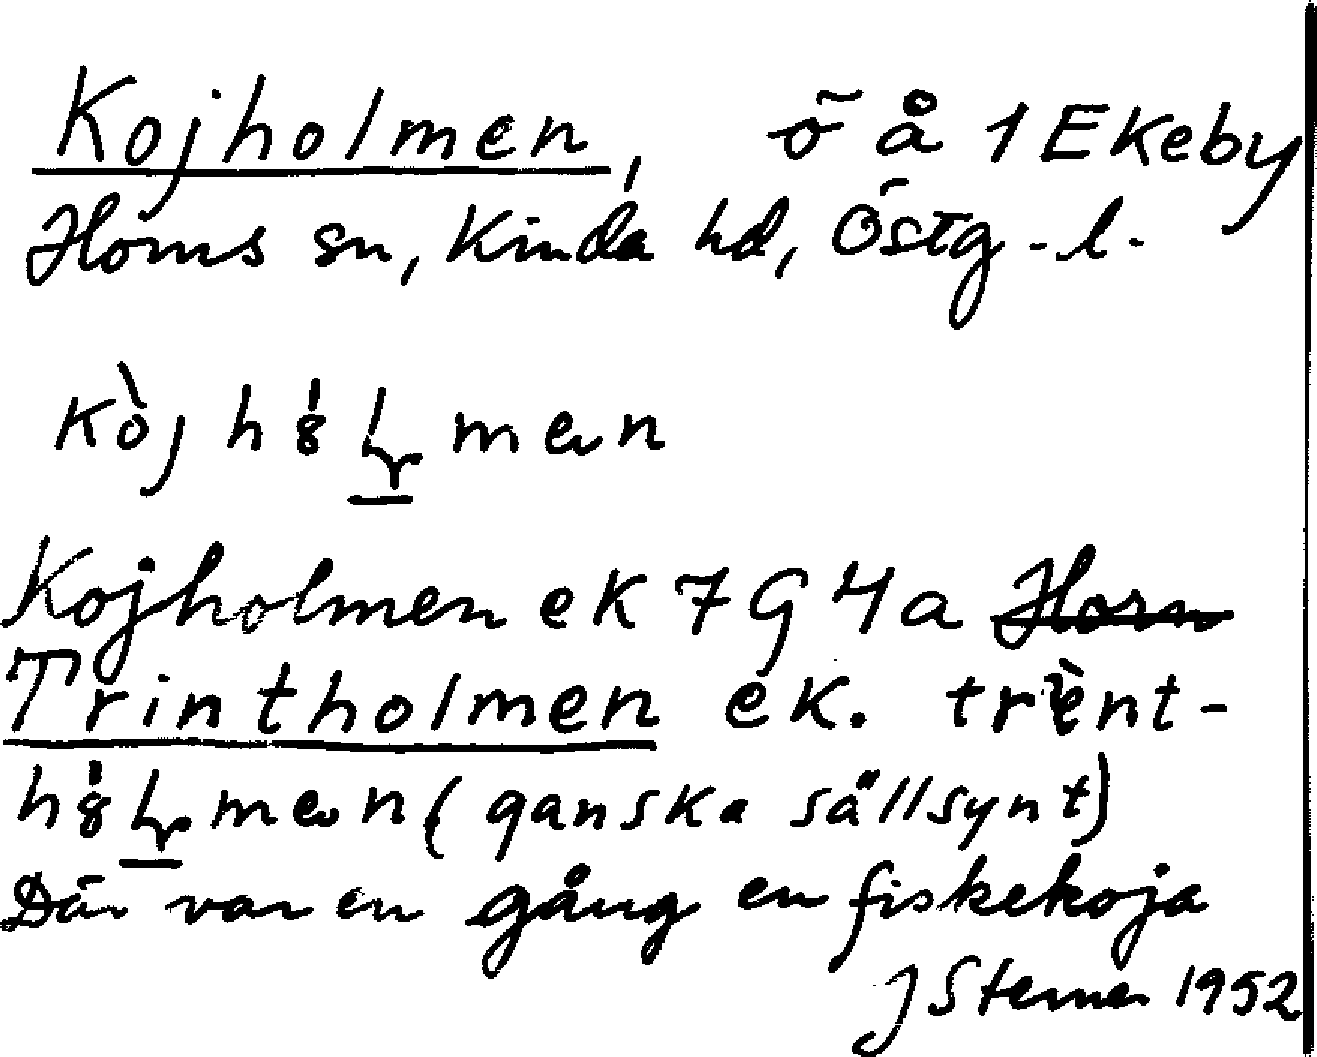 Kojholmen, ö å 1 Ekeby
Horns sn, Kinda hd, Östg-l.
Kojholmen ek 7 G 4 a Horn
Trintholmen ek. trènt-
(ganska sällsynt)
Där var en gång en fiskekoja
J Sterner 1952